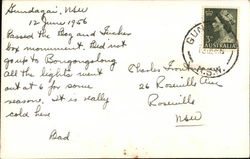 Gundagai, NSW
12 June 1956
Passed the Dog and Tucker
box monument. Did not
go up to Bongongolong
all the lights went
out at 6 for some
reason. It is really
cold here
Dad
Charles
26 Roseville Ave
Roseville
NSW
GUN
N.S.W.
AUSTRALIA